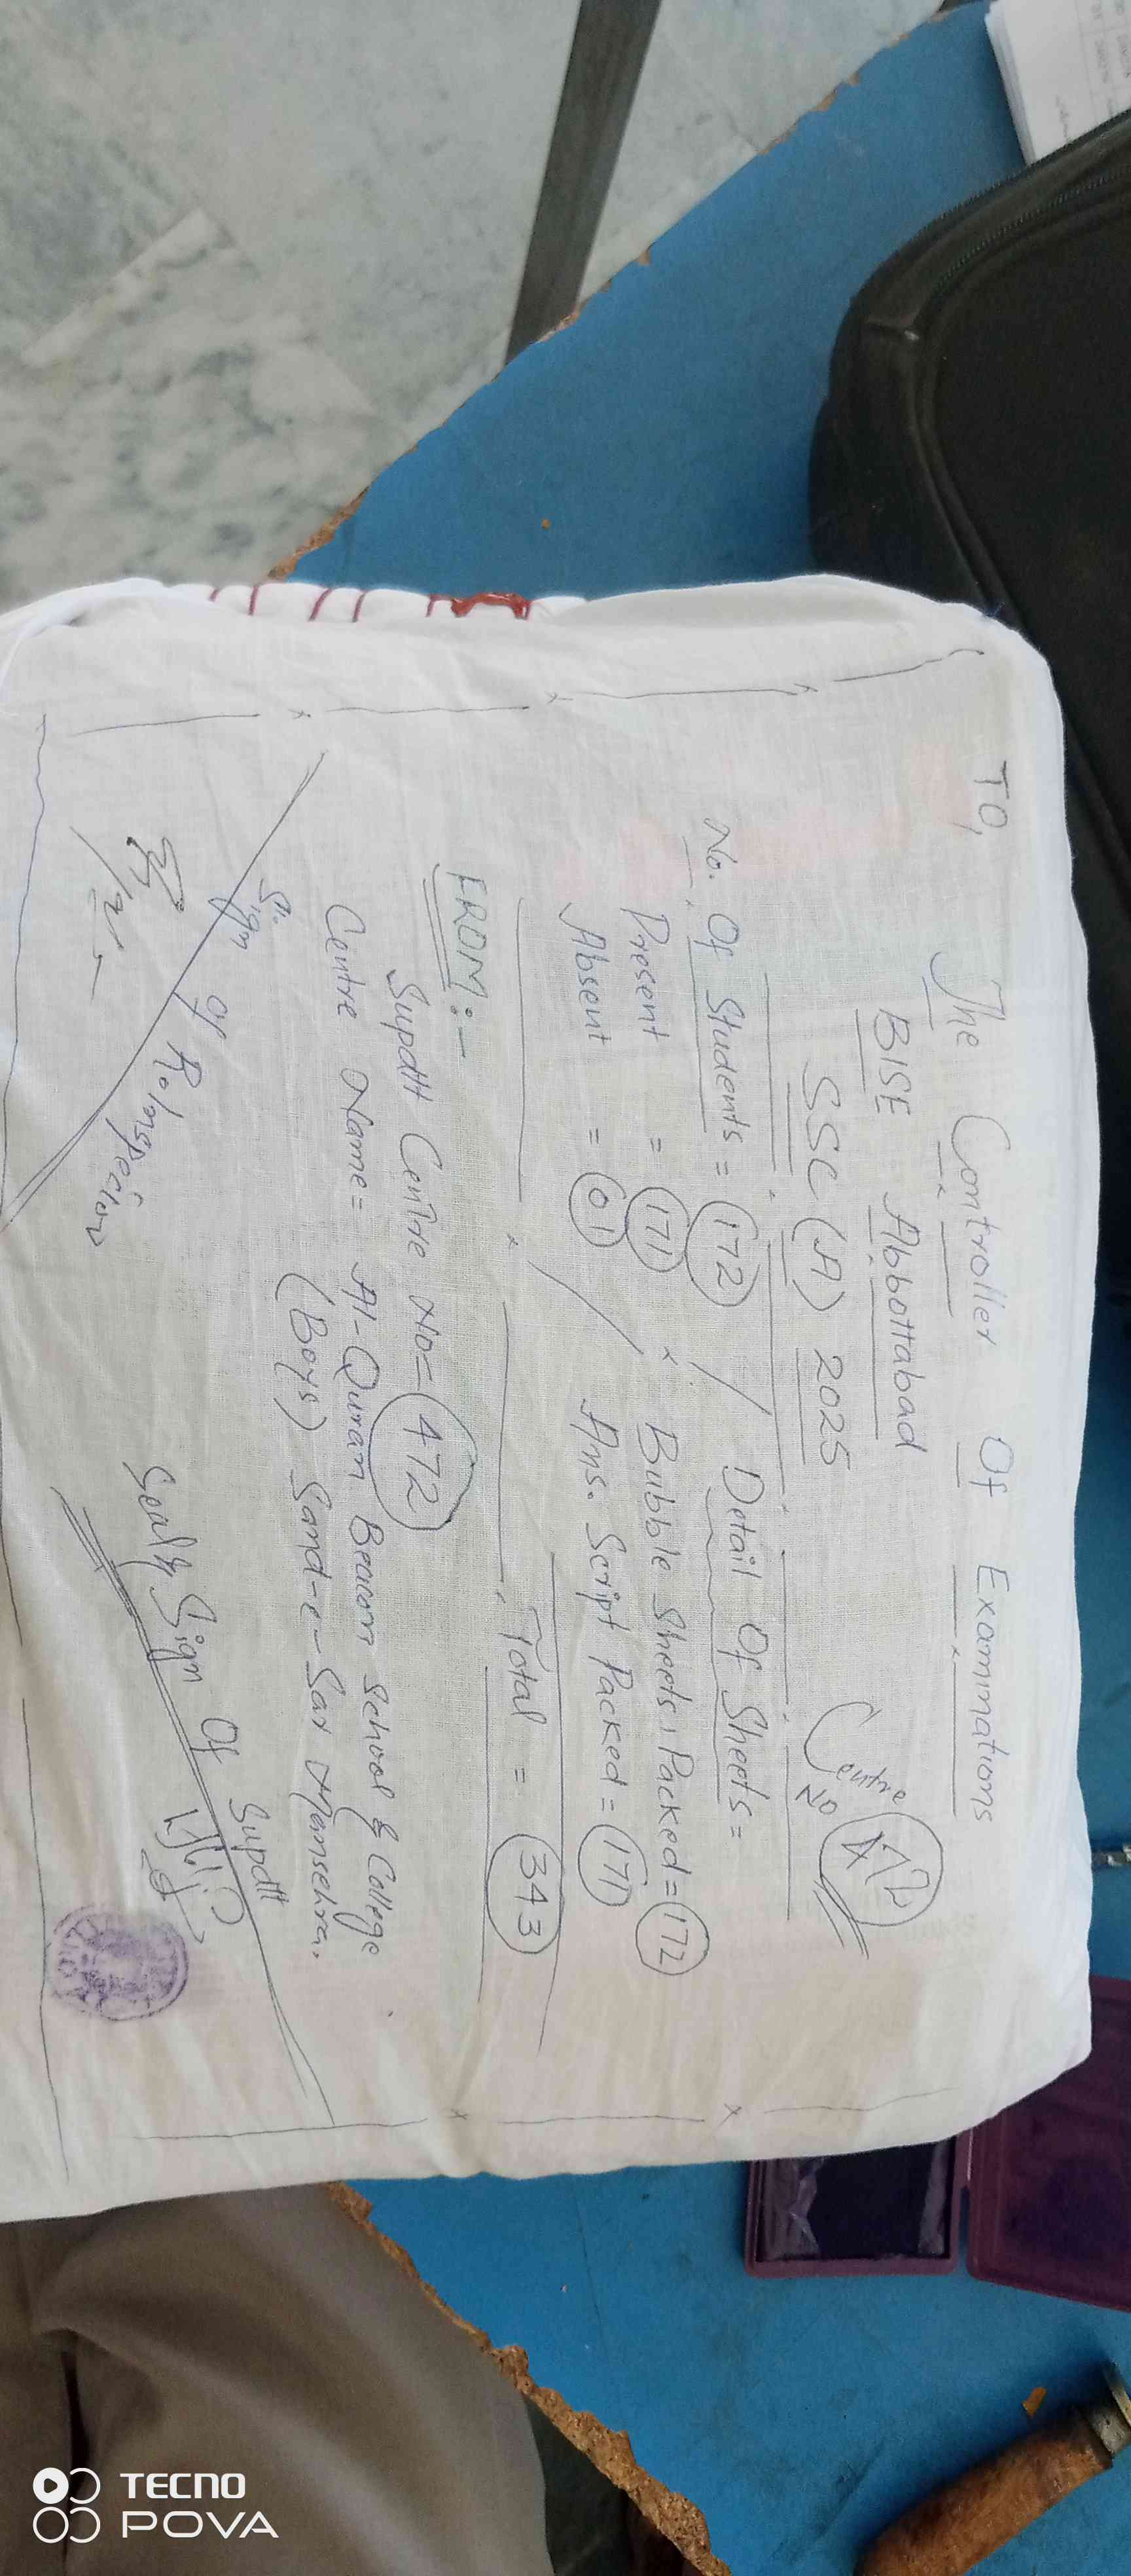 TO,
The Controller Of Examinations
BISE Abbottabad
SSC (A) 2025
Centre No 472
No. Of Students = 172
Present = 171
Absent = 01
Detail Of Sheets =
Bubble Sheets Packed = 172
Ans. Script Packed = 171
Total = 343
FROM:-
Supdtt Centre No = 472
Centre Name = Al-Quran Beacon School & College
(Boys) Sand-e-Sar Mansehra.
Sign of R. Inspector
Seal & Sign Of Supdtt
TECNO
POVA